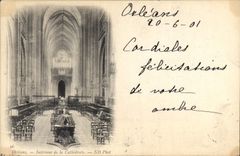 Orléans
20-6-01
Cordiales
félicitations
de votre
ombre
ORLÉANS. - Intérieur de la Cathédrale. - ND Phot.